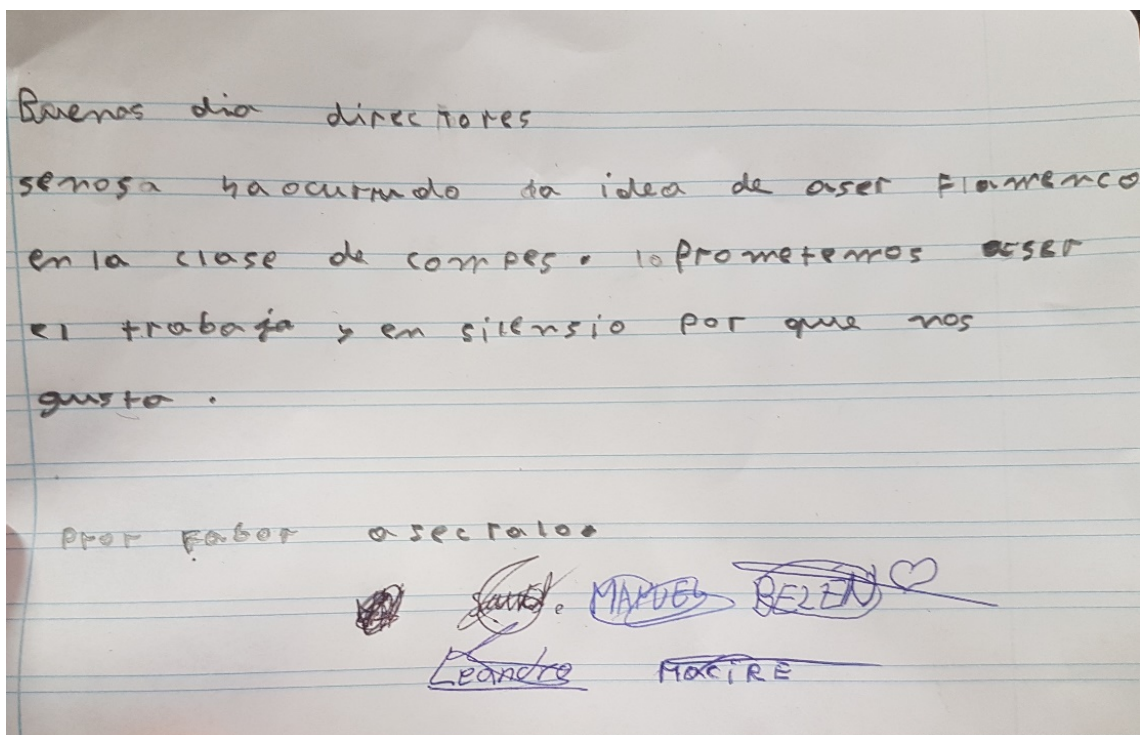 Buenos dia directores
senosa haocurrido la idea de aser Flamenco
en la clase de compes. loprometemos aser
el trabajo y en silensio por que nos
gusta.
Pror fabor asectalo.
MANUEL BELEN
Leandro MaciRE